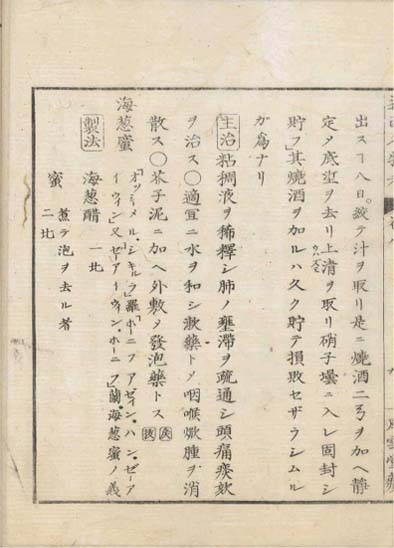 出スヿ八日。絞テ汁ヲ取リ是ニ燒酒二弓ヲ加ヘ静
定メ底渣ヲ去リ上清ヲ取リ硝子壜ニ入レ固封シ
貯フ其燒酒ヲ加ルハ久ク貯テ損敗セザラシムル
ガ爲ナリ
主治 粘稠液ヲ稀釋シ肺ノ壅滞ヲ疏通シ頭痛痰欬
ヲ治ス〇適宜ニ水ヲ和シ漱藥トメ咽喉焮腫ヲ消
散ス〇芥子泥ニ加ヘ外敷メ發泡藥トス
海葱蜜 オッシィメル、シキルラ羅ホーニフ アゼイン、ハン、ゼーア
イウィン又ゼーアーイウィン、ホーニフ蘭海葱蜜ノ義
製法 海葱醋 一比
蜜 煮テ泡ヲ去ル者 二比